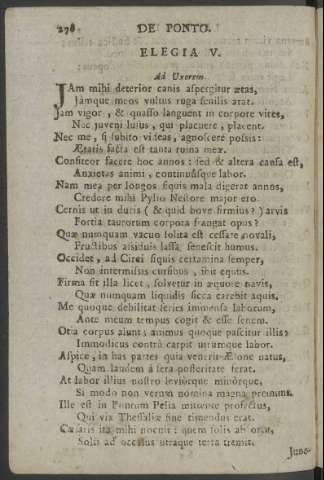 278 DE PONTO.
ELEGIA V.
Ad Uxorem.
JAm mihi deterior canis aspergitur ætas,
Jámque meos vultus ruga senilis arat.
Jam vigor, & quasso languent in corpore vires,
Nec juveni lusus, qui placuere, placent.
Nec me, si subito videas, agnoscere possis:
Ætatis facta est tanta ruina meæ.
Confiteor facere hoc annos: sed & altera causa est,
Anxietas animi, continuúsque labor.
Nam mea per longos siquis mala digerat annos,
Credere mihi Pylio Nestore major ero.
Cernis ut in duris (& quid bove firmius?) arvis
Fortia taurorum corpora frangat opus?
Quæ numquam vacuo solita est cessare novali,
Fructibus assiduis lassa senescit humus.
Occidet, ad Circi siquis certamina semper,
Non intermissis cursibus, ibit equus.
Firma sit illa licet, solvetur in æquore navis,
Quæ numquam liquidis sicca carebit aquis.
Me quoque debilitat series immensa laborum,
Ante meum tempus cogit & esse senem.
Otia corpus alunt; animus quoque pascitur illis:
Immodicus contrà carpit utrumque labor.
Aspice, in has partes quia venerit Æsone natus,
Quam laudem à sera posteritate ferat.
At labor illius nostro leviórque minórque,
Si modo non verum nomina magna premunt.
Ille est in Pontum Pelia mittente profectus,
Qui vix Thessaliæ fine timendus erat.
Cæsaris ira mihi nocuit: quem solis ab ortu,
Solis ad occasus utraque terra tremit.
Junc-